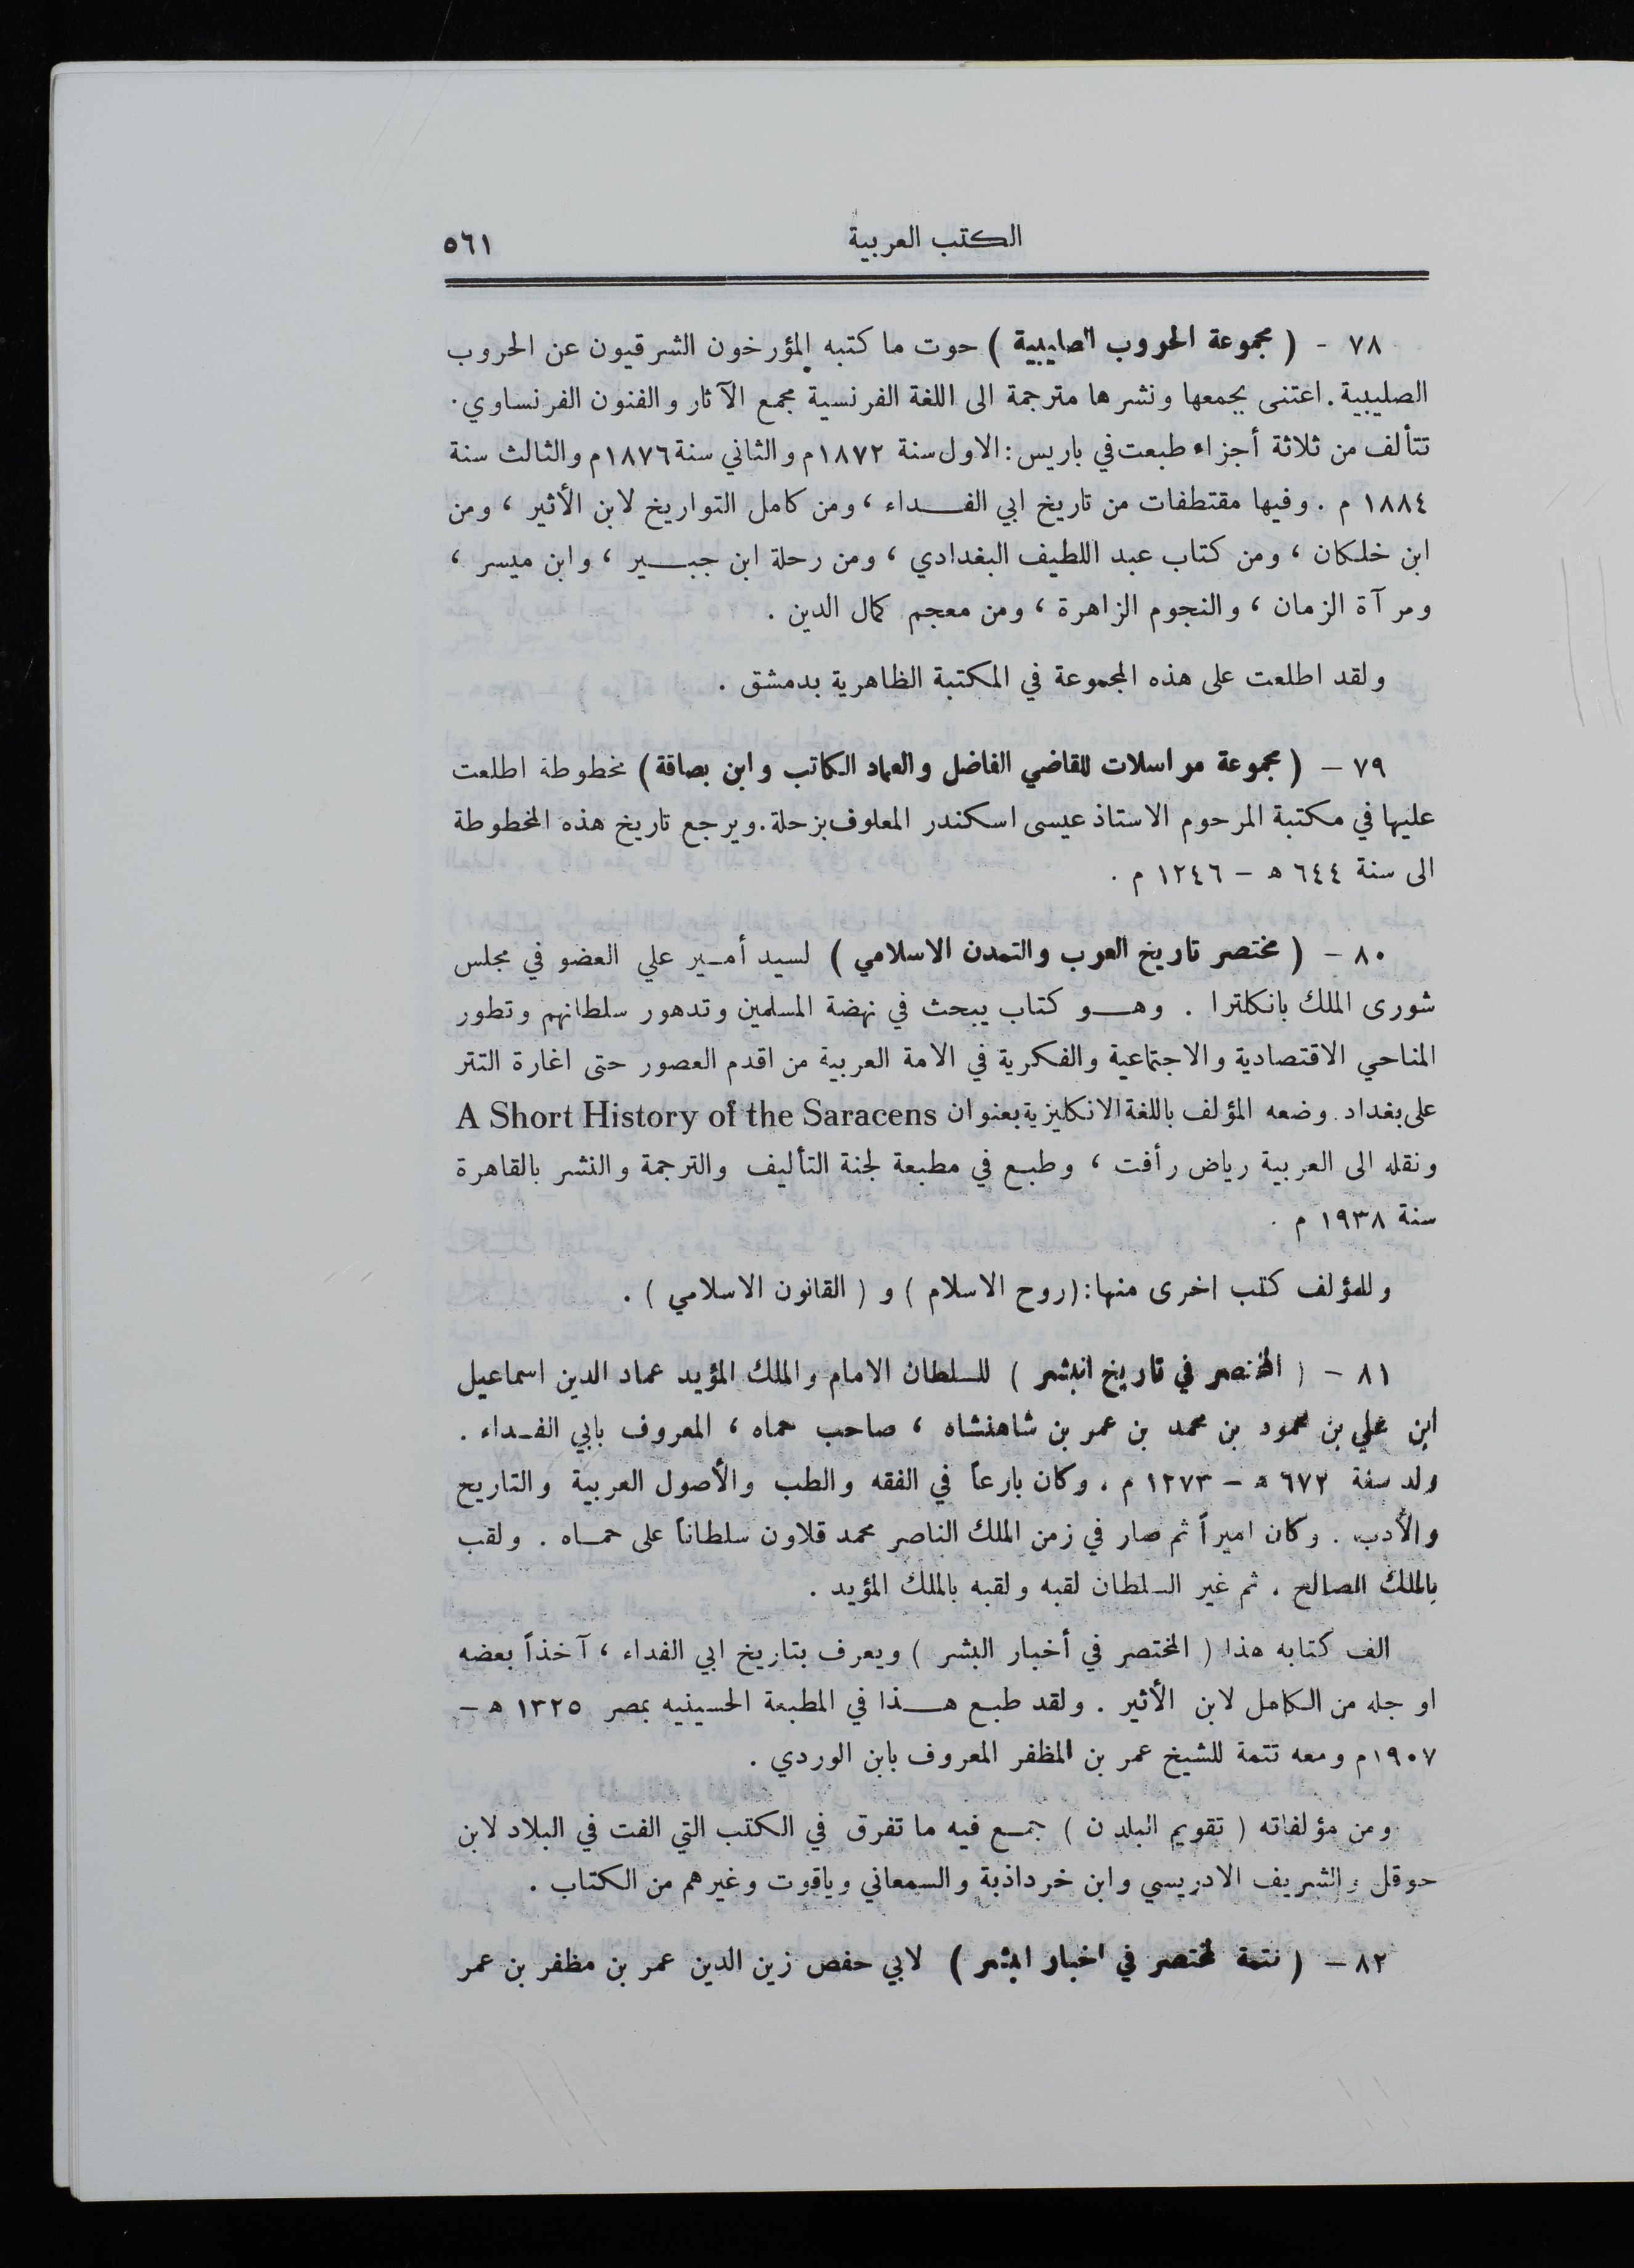 الكتب العربية ٥٦١
٧٨ - ( مجموعة الحروب الصليبية ) حوت ما كتبه المؤرخون الشرقيون عن الحروب
الصليبية . اعتنى بجمعها ونشرها مترجمة الى اللغة الفرنسية مجمع الآثار والفنون الفرنساوي .
تتألف من ثلاثة أجزاء طبعت في باريس : الاول سنة ١٨٧٢ م والثاني سنة ١٨٧٦ م والثالث سنة
١٨٨٤ م . وفيها مقتطفات من تاريخ ابي الفداء ، ومن كامل التواريخ لابن الأثير ، ومن
ابن خلكان ، ومن كتاب عبد اللطيف البغدادي ، ومن رحلة ابن جبير ، وابن ميسر ،
ومرآة الزمان ، والنجوم الزاهرة ، ومن معجم كمال الدين .
ولقد اطلعت على هذه المجموعة في المكتبة الظاهرية بدمشق .
٧٩ – ( مجموعة مراسلات للقاضي الفاضل والعماد الكاتب وابن بصاقة ) مخطوطة اطلعت
عليها في مكتبة المرحوم الاستاذ عيسى اسكندر المعلوف بزحلة . ويرجع تاريخ هذه المخطوطة
الى سنة ٦٤٤ ه – ١٢٤٦ م .
٨٠ – ( مختصر تاريخ العرب والتمدن الاسلامي ) لسيد أمير علي العضو في مجلس
شورى الملك بانكلترا . وهو كتاب يبحث في نهضة المسلمين وتدهور سلطانهم وتطور
المناحي الاقتصادية والاجتماعية والفكرية في الامة العربية من اقدم العصور حتى اغارة التتر
على بغداد . وضعه المؤلف باللغة الانكليزية بعنوان A Short History of the Saracens
ونقله الى العربية رياض رأفت ، وطبع في مطبعة لجنة التأليف والترجمة والنشر بالقاهرة
سنة ١٩٣٨ م .
وللمؤلف كتب اخرى منها : ( روح الاسلام ) و ( القانون الاسلامي ) .
٨١ – ( المختصر في تاريخ البشر ) للسلطان الامام والملك المؤيد عماد الدين اسماعيل
ابن علي بن محمود بن محمد بن عمر بن شاهنشاه ، صاحب حماه ، المعروف بابي الفداء .
ولد سنة ٦٧٢ ه – ١٢٧٣ م . وكان بارعاً في الفقه والطب والأصول العربية والتاريخ
والأدب . وكان اميراً ثم صار في زمن الملك الناصر محمد قلاون سلطاناً على حماه . ولقب
بالملك الصالح . ثم غير السلطان لقبه ولقبه بالملك المؤيد .
الف كتابه هذا ( المختصر في أخبار البشر ) ويعرف بتاريخ ابي الفداء ، آخذاً بعضه
او جله من الكامل لابن الأثير . ولقد طبع هذا في المطبعة الحسينيه بمصر ١٣٢٥ ه –
١٩٠٧ م ومعه تتمة للشيخ عمر بن المظفر المعروف بابن الوردي .
ومن مؤلفاته ( تقويم البلدن ) جمع فيه ما تفرق في الكتب التي الفت في البلاد لابن
حوقل والشريف الادريسي وابن خرداذبة والسمعاني وياقوت وغيرهم من الكتاب .
٨٢ – ( تتمة المختصر في اخبار البشر ) لابي حفص زين الدين عمر بن مظفر بن عمر